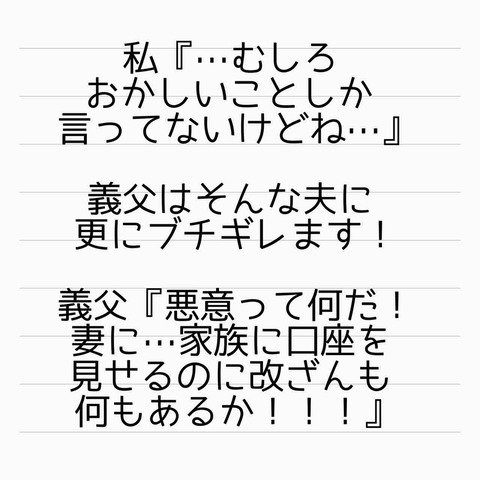 私『…むしろ
おかしいことしか
言ってないけどね…』
義父はそんな夫に
更にブチギレます！
義父『悪意って何だ！
妻に…家族に口座を
見せるのに改ざんも
何もあるか！！！』